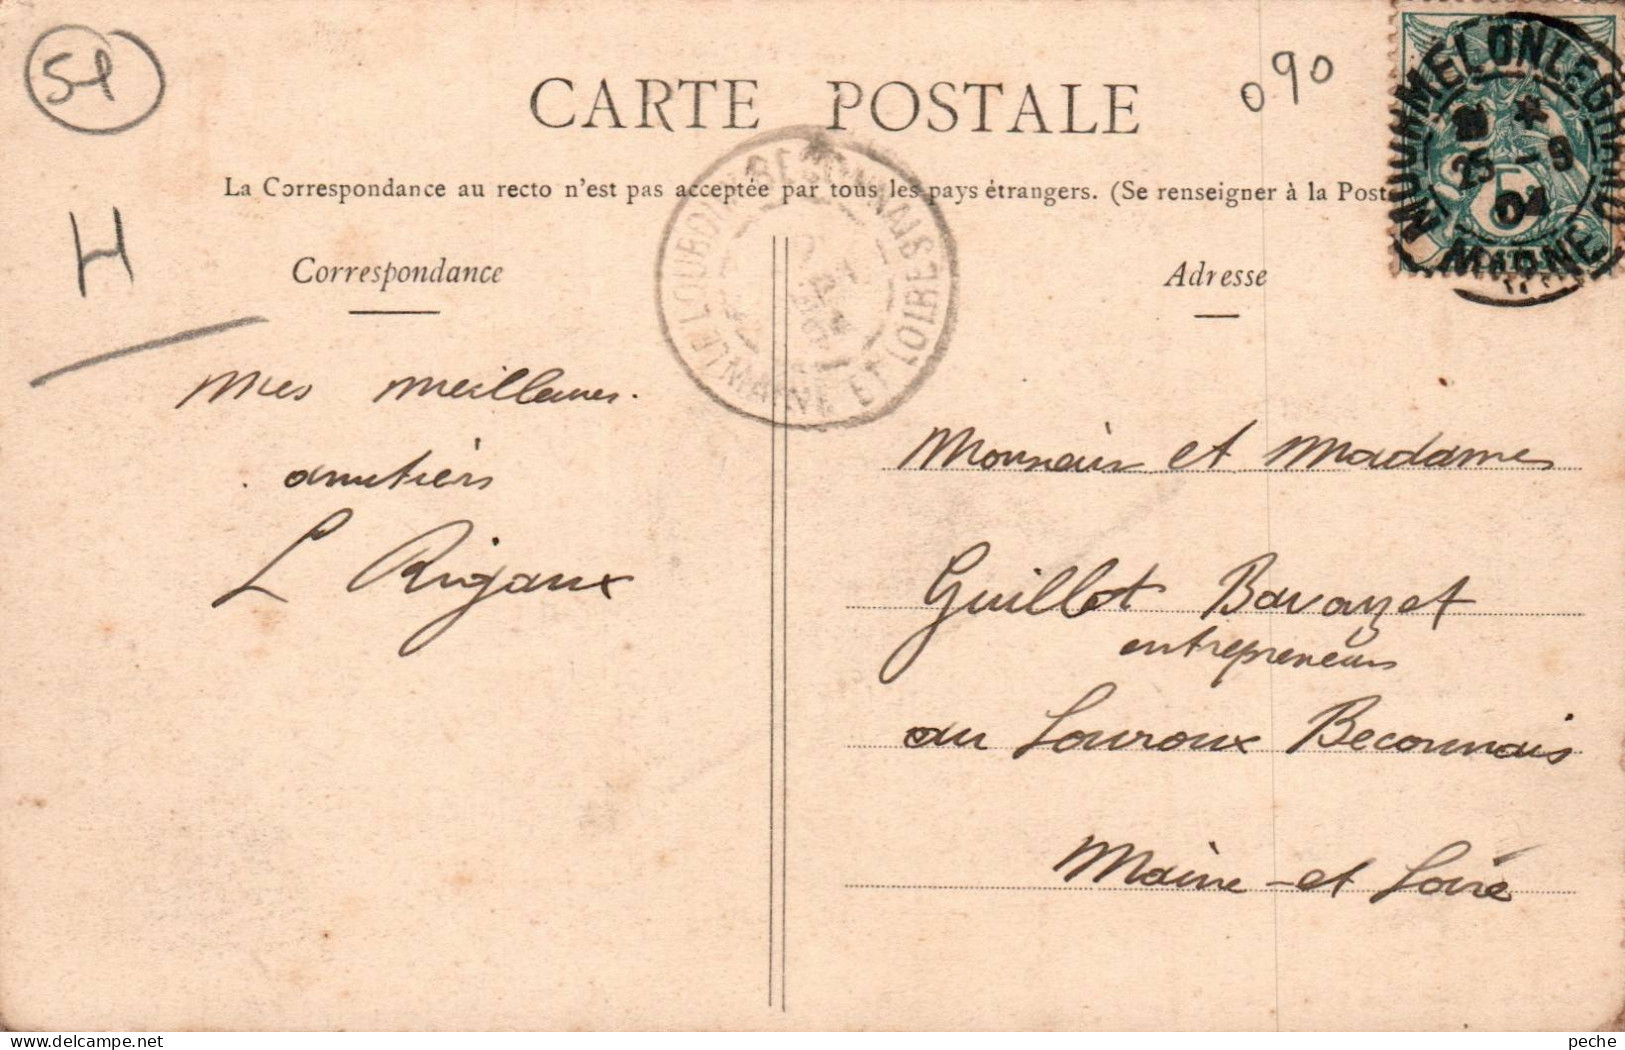 51
CARTE POSTALE
090
MOURMELON LE GRAND
25 -9
04
MARNE
La Correspondance au recto n'est pas acceptée par tous les pays étrangers. (Se renseigner à la Post
H
LE LOUROUX BECONNAIS
MAINE ET LOIRE
Correspondance
Adresse
Mes meilleures
amitiés
L Rigaux
Monsieur et Madame
Guillot Bavazet
entrepreneur
au Louroux Beconnais
Maine-et Loire
peche